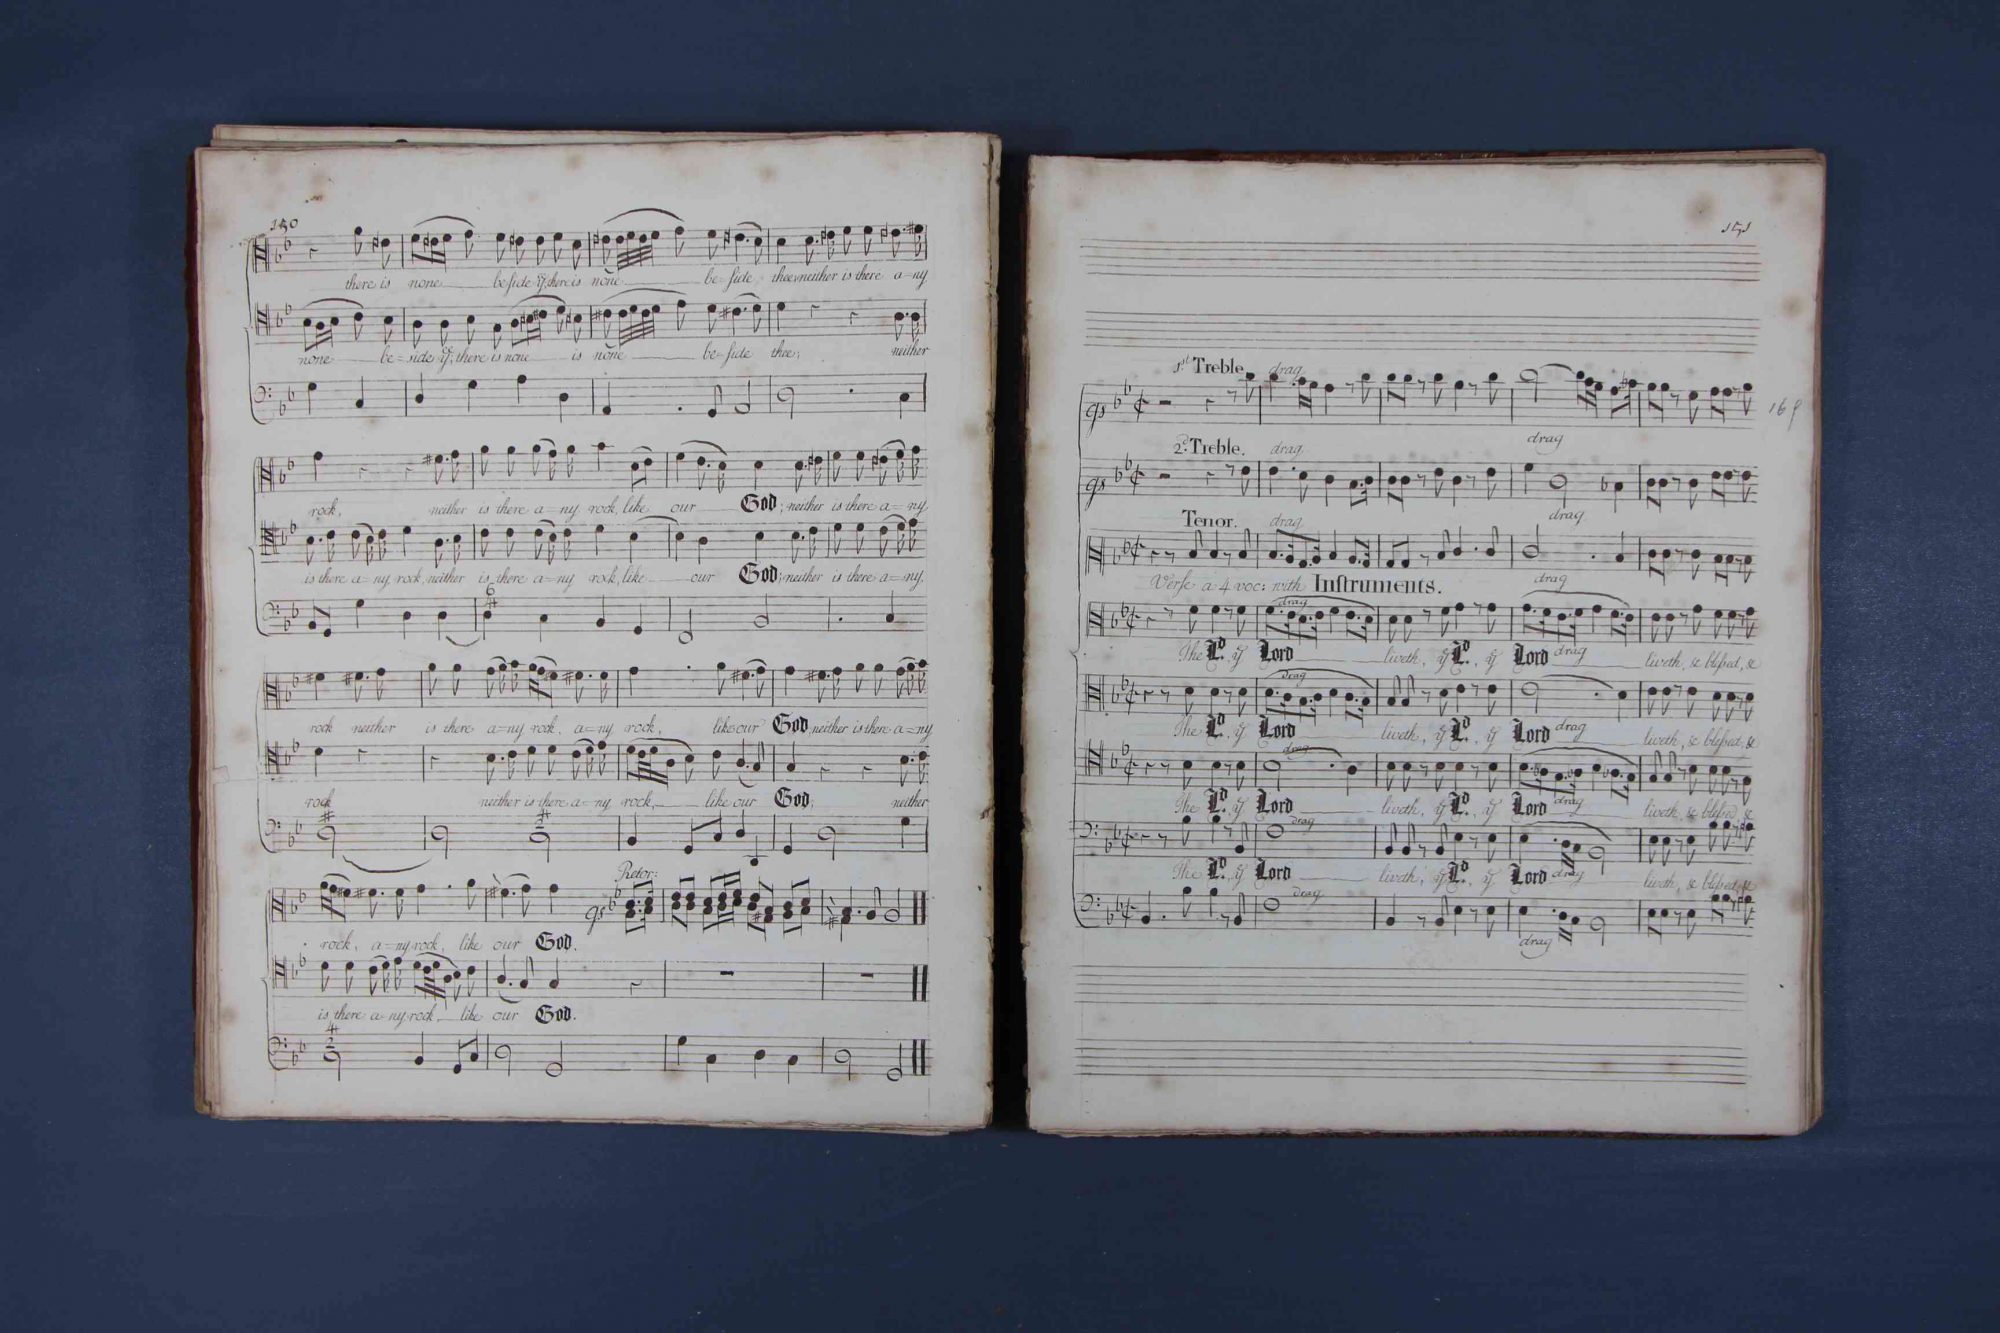 150
there is none beside yͤ, there is none be=side thee, neither is there a=ny
none be=side yͤ, there is none is none be=side thee; neither
rock, neither is there a=ny rock, like our God; neither is there a=ny
is there a=ny rock, neither is there a=ny rock, like our God; neither is there a=ny
6
rock neither is there a=ny rock, a=ny rock, like our God neither is there a=ny
rock neither is there a=ny rock, like our God; neither
Retor:
rock, a=ny rock, like our God.
is there a=ny rock, like our God.
4
2
151
1st Treble. drag
drag
2d Treble. drag
drag
Tenor. drag
drag
Verse a 4 voc: with Instruments.
drag
The Ld, yͤ Lord drag liveth, yͤ Ld, yͤ Lord liveth, & blessed, &
drag
The Ld, yͤ Lord drag liveth, yͤ Ld, yͤ Lord liveth, & blessed, &
drag
The Ld, yͤ Lord drag liveth, yͤ Ld, yͤ Lord liveth, & blessed, &
drag
The Ld, yͤ Lord drag liveth, yͤ Ld, yͤ Lord liveth, & blessed, &
drag
drag